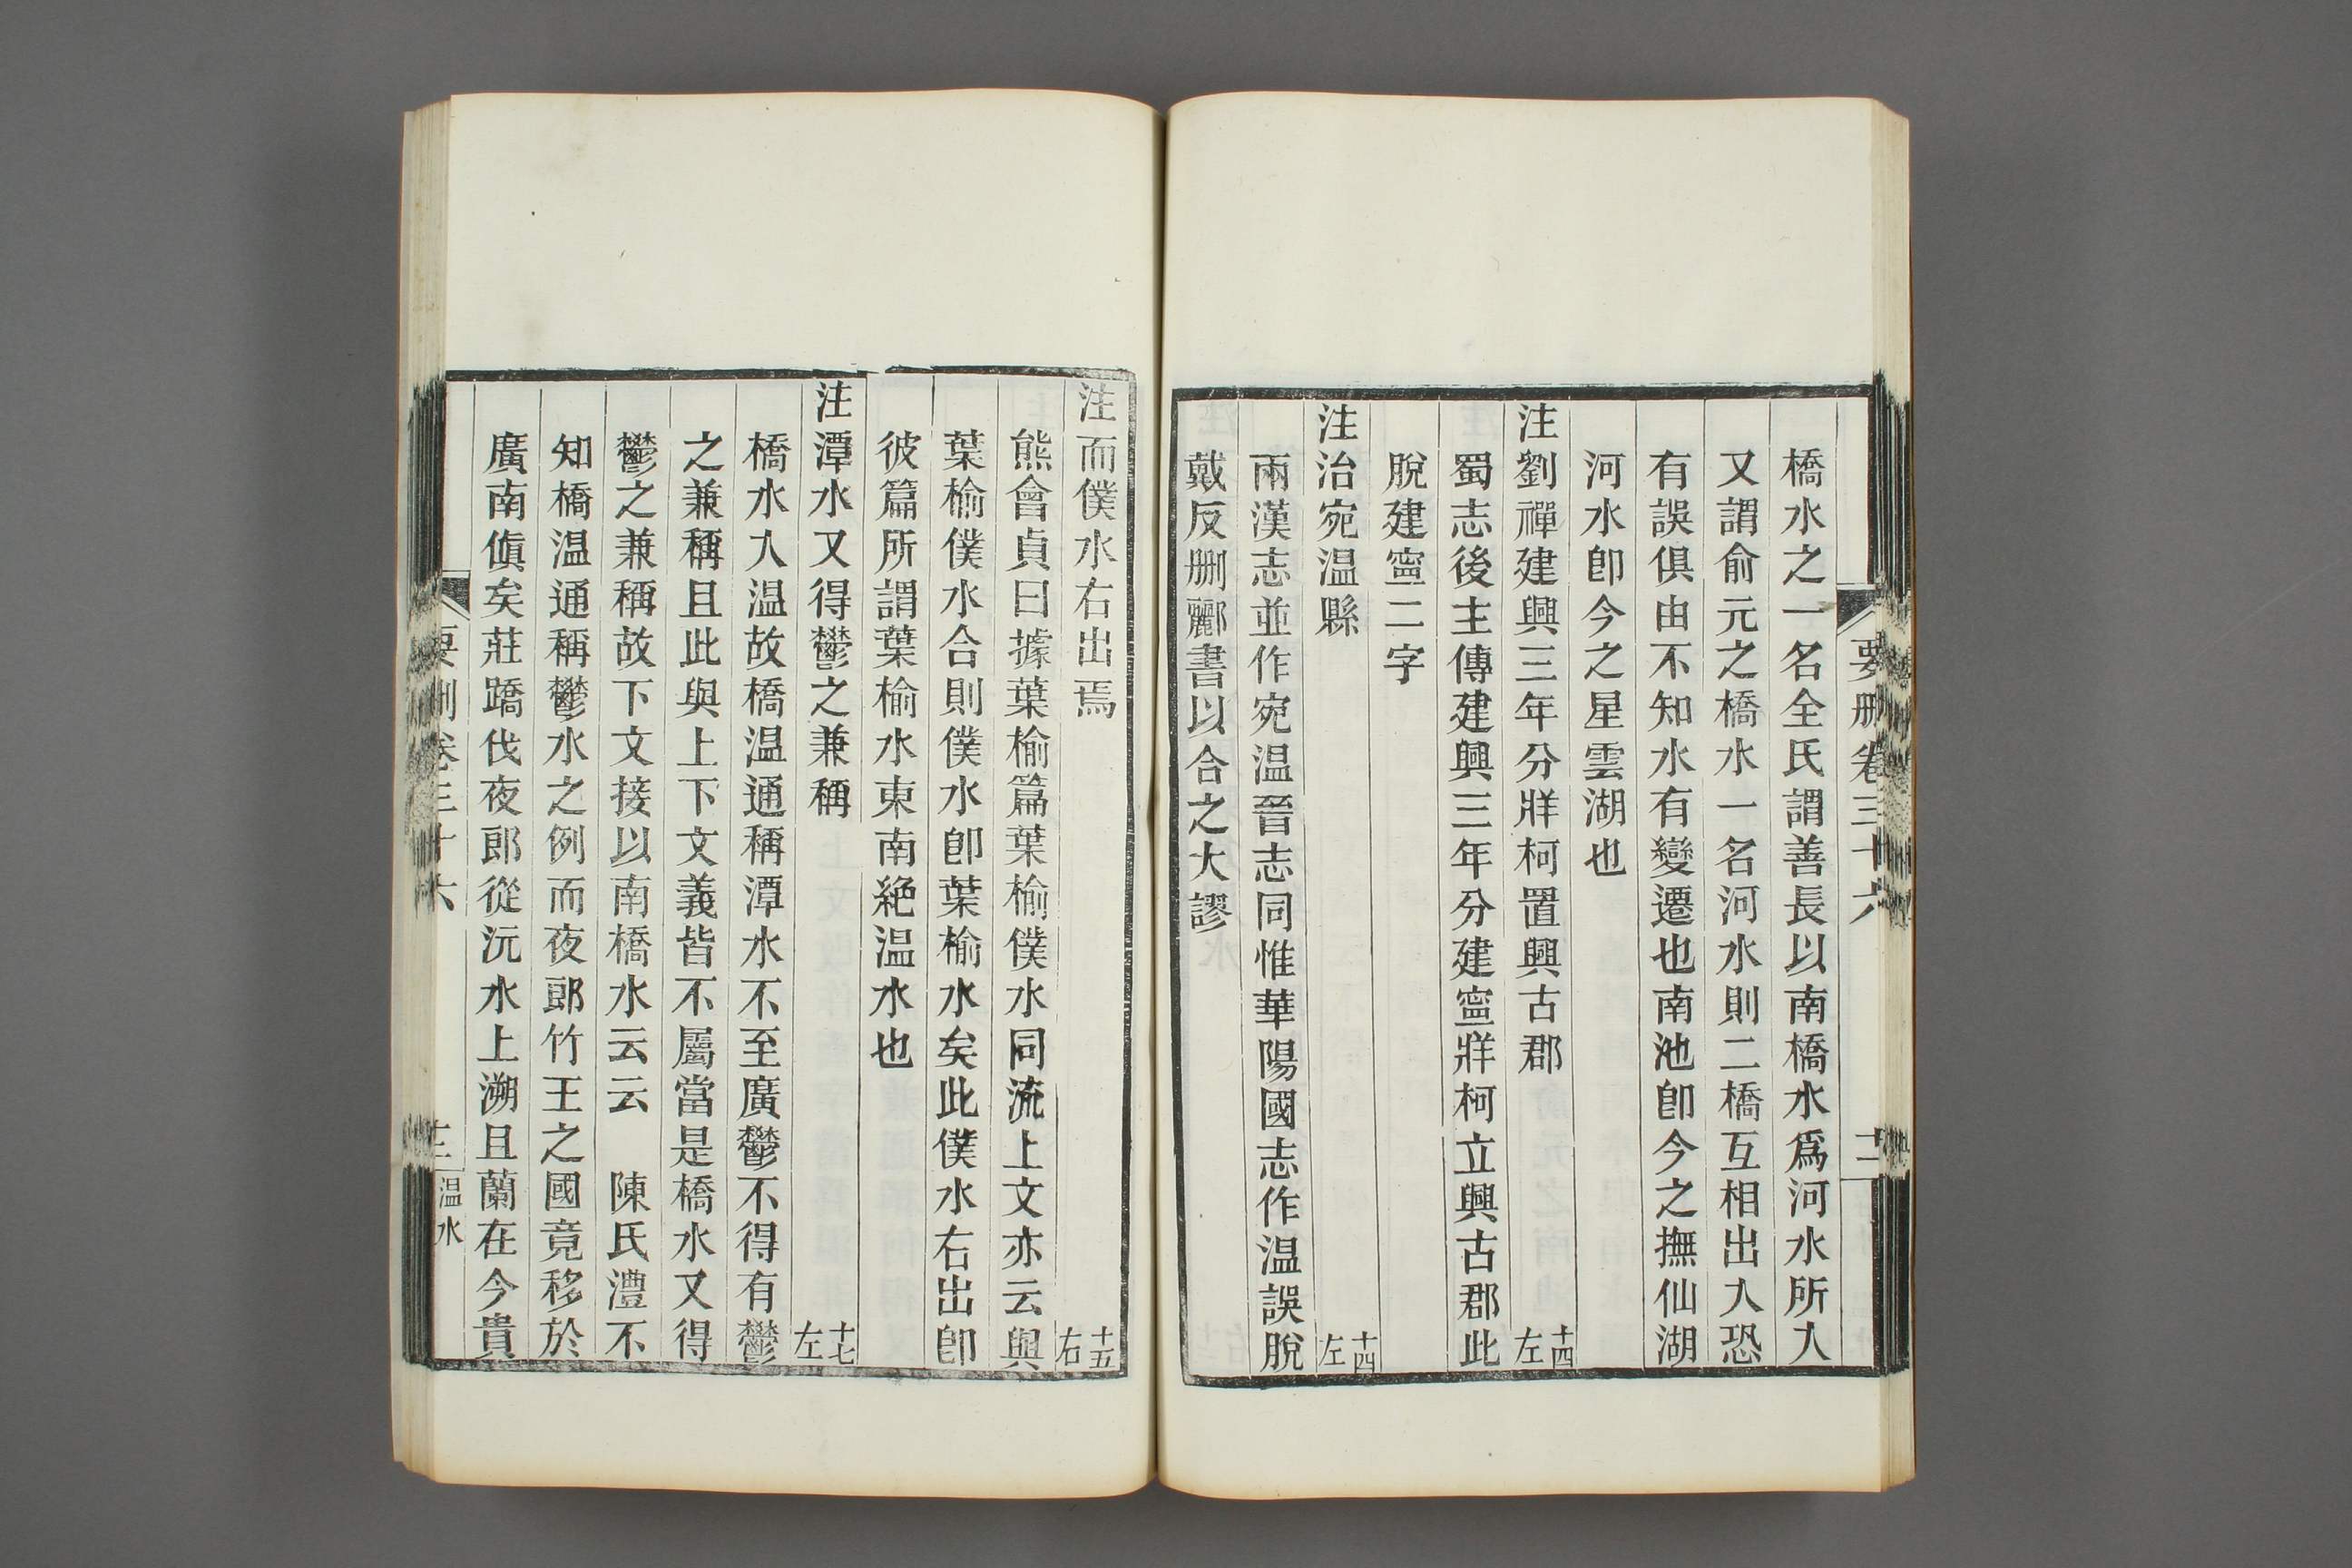 要刪卷三十六
十二
橋水之一名全氏謂善長以南橋水爲河水所入
又謂俞元之橋水一名河水則二橋互相出入恐
有誤俱由不知水有變遷也南池卽今之撫仙湖
河水卽今之星雲湖也
注劉禪建興三年分牂柯置興古郡 十四左
蜀志後主傳建興三年分建寧牂柯立興古郡此
脫建寧二字
注治宛温縣 十四左
兩漢志並作宛温晉志同惟華陽國志作温誤脫
戴反刪酈書以合之大謬
注而僕水右出焉 十五右
熊會貞曰據葉榆篇葉榆僕水同流上文亦云與
葉榆僕水合則僕水卽葉榆水矣此僕水右出卽
彼篇所謂葉榆水東南絶温水也
注潭水又得鬱之兼稱 十七左
橋水入温故橋温通稱潭水不至廣鬱不得有鬱
之兼稱且此與上下文義皆不屬當是橋水又得
鬱之兼稱故下文接以南橋水云云　陳氏澧不
知橋温通稱鬱水之例而夜郎竹王之國竟移於
廣南傎矣莊蹻伐夜郎從沅水上溯且蘭在今貴
要刪卷三十六
温水